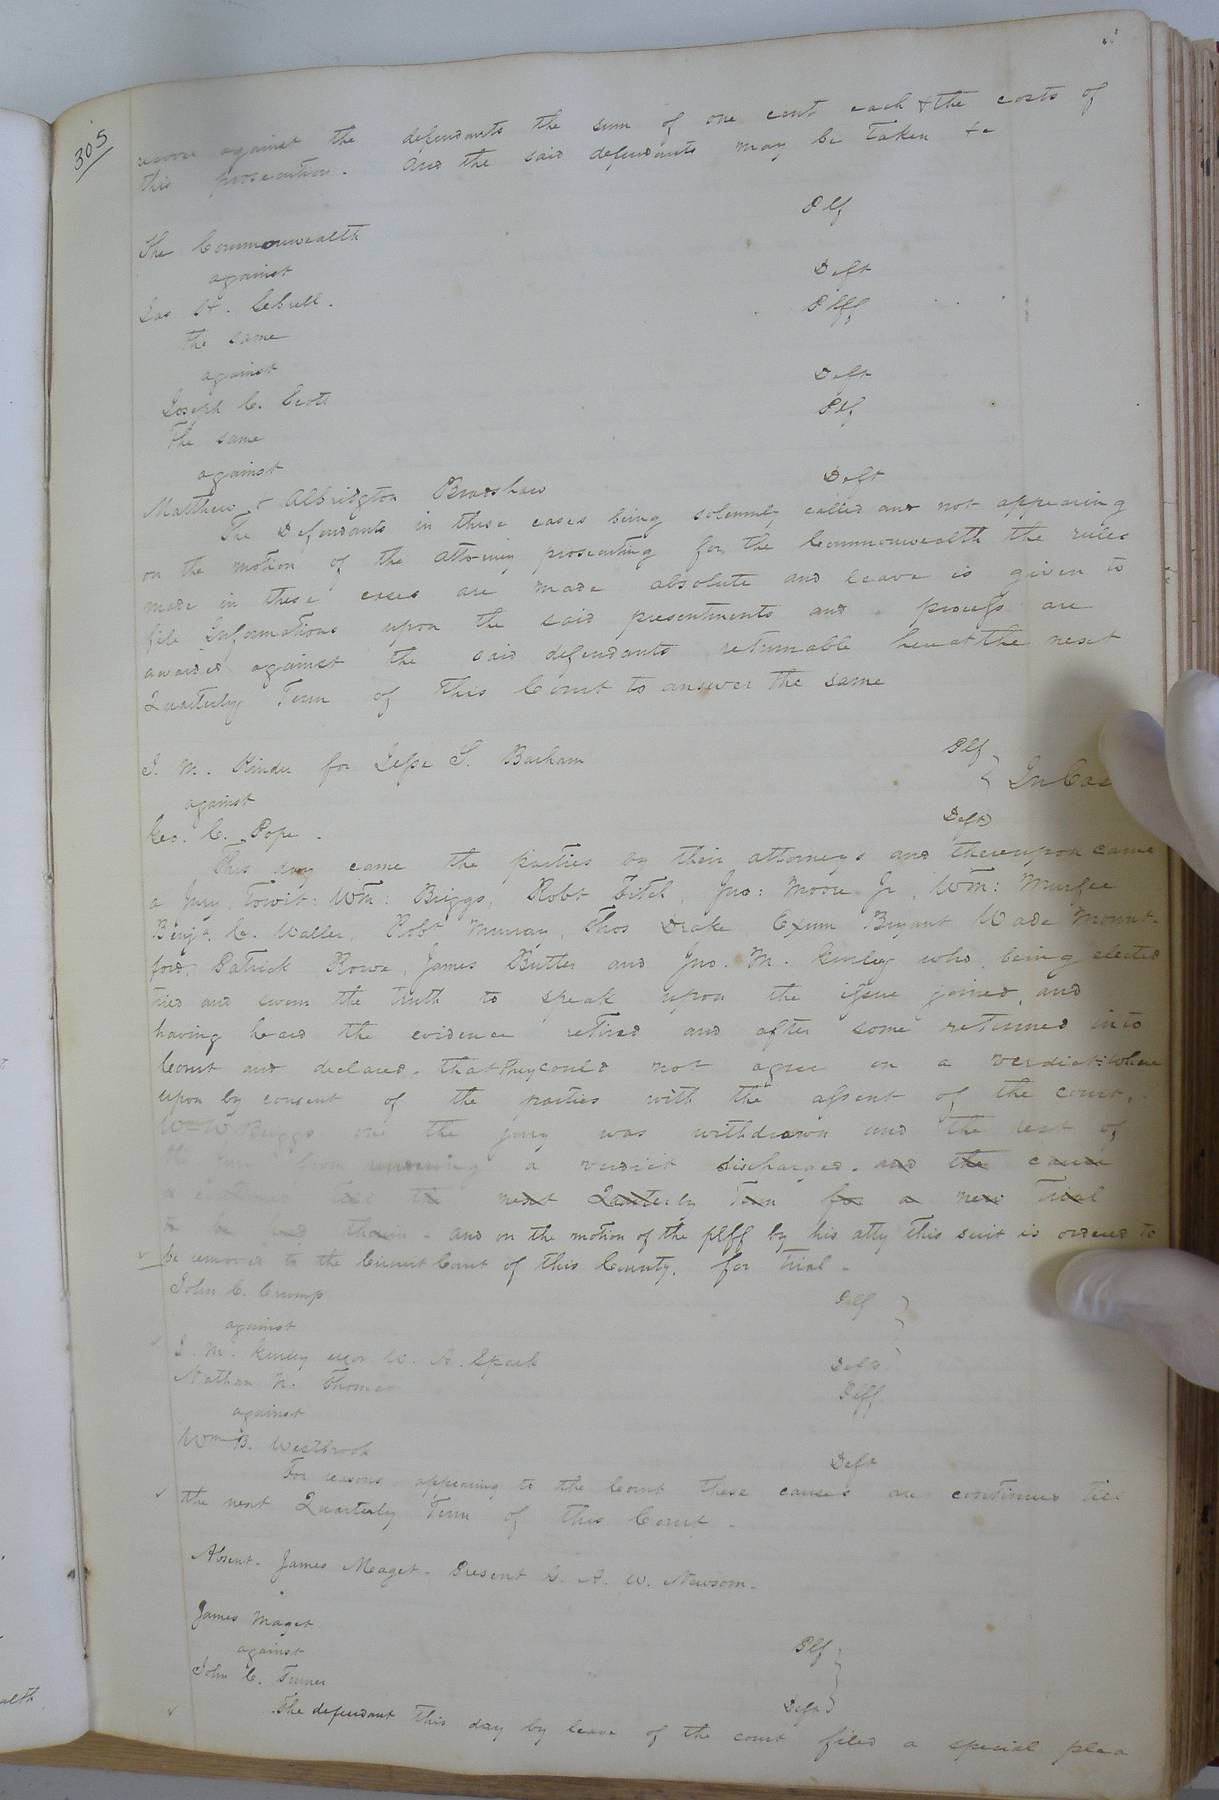 305
recover against the defendants the sum of one cent each & the costs of
this prosecution. And the said defendants may be taken &c
The Commonwealth Plf
against
Jas H. Sebrell. Deft
The same Plff
against
Joseph C. Scott Deft
The same Plf
against
Matthew & Albridgton Bradshaw Deft
The Defendants in these cases being solemnly called and not appearing
on the motion of the attorney prosecuting for the Commonwealth the rules
made in these cases are made absolute and leave is given to
file Informations upon the said presentments and process are
awarded against the said defendants returnable here at the next
Quarterly Term of this Court to answer the same
J. M. Kinder for Jesse S. Barham Plf
against In Case
Geo. C. Pope. Deft
This day came the parties by their attorneys and thereupon came
a Jury, Towit: Wm: Briggs, Robt Jno: Moore Jr, Wm: Murfee
Benja. C. Waller, Robt Murray, Thos Drake, Exum Bryant Wade Mount-
ford, Patrick Rowe, James Butler and Jno. M. Kinley who being elected
tried and sworn the truth to speak upon the issue joined, and
having heard the evidence retired and after some returned into
Court and declared, that they could not agree on a verdict: Where
upon by consent of the parties with the assent of the court,
Wm W Briggs one the jury was withdrawn and the rest of
the jury from rendering a verdict discharged. and the cause
till the next Quarterly Term for a new trial
to be had therein. and on the motion of the plff by his atty this suit is ordered to
be removed to the Circuit Court of this County, for trial.
John C. Crump Plf
against
J. M. Kinley exor W. A. Spark Deft
Nathan N. Thomas Plff
against
Wm B. Westbrook Deft
For reasons appearing to the Court these causes are continued till
the next Quarterly Term of this Court.
Absent. James Maget. Present L. A. W. Newsom.
James Maget Plf
against
John C. Turner Deft
The defendant this day by leave of the court filed a special plea